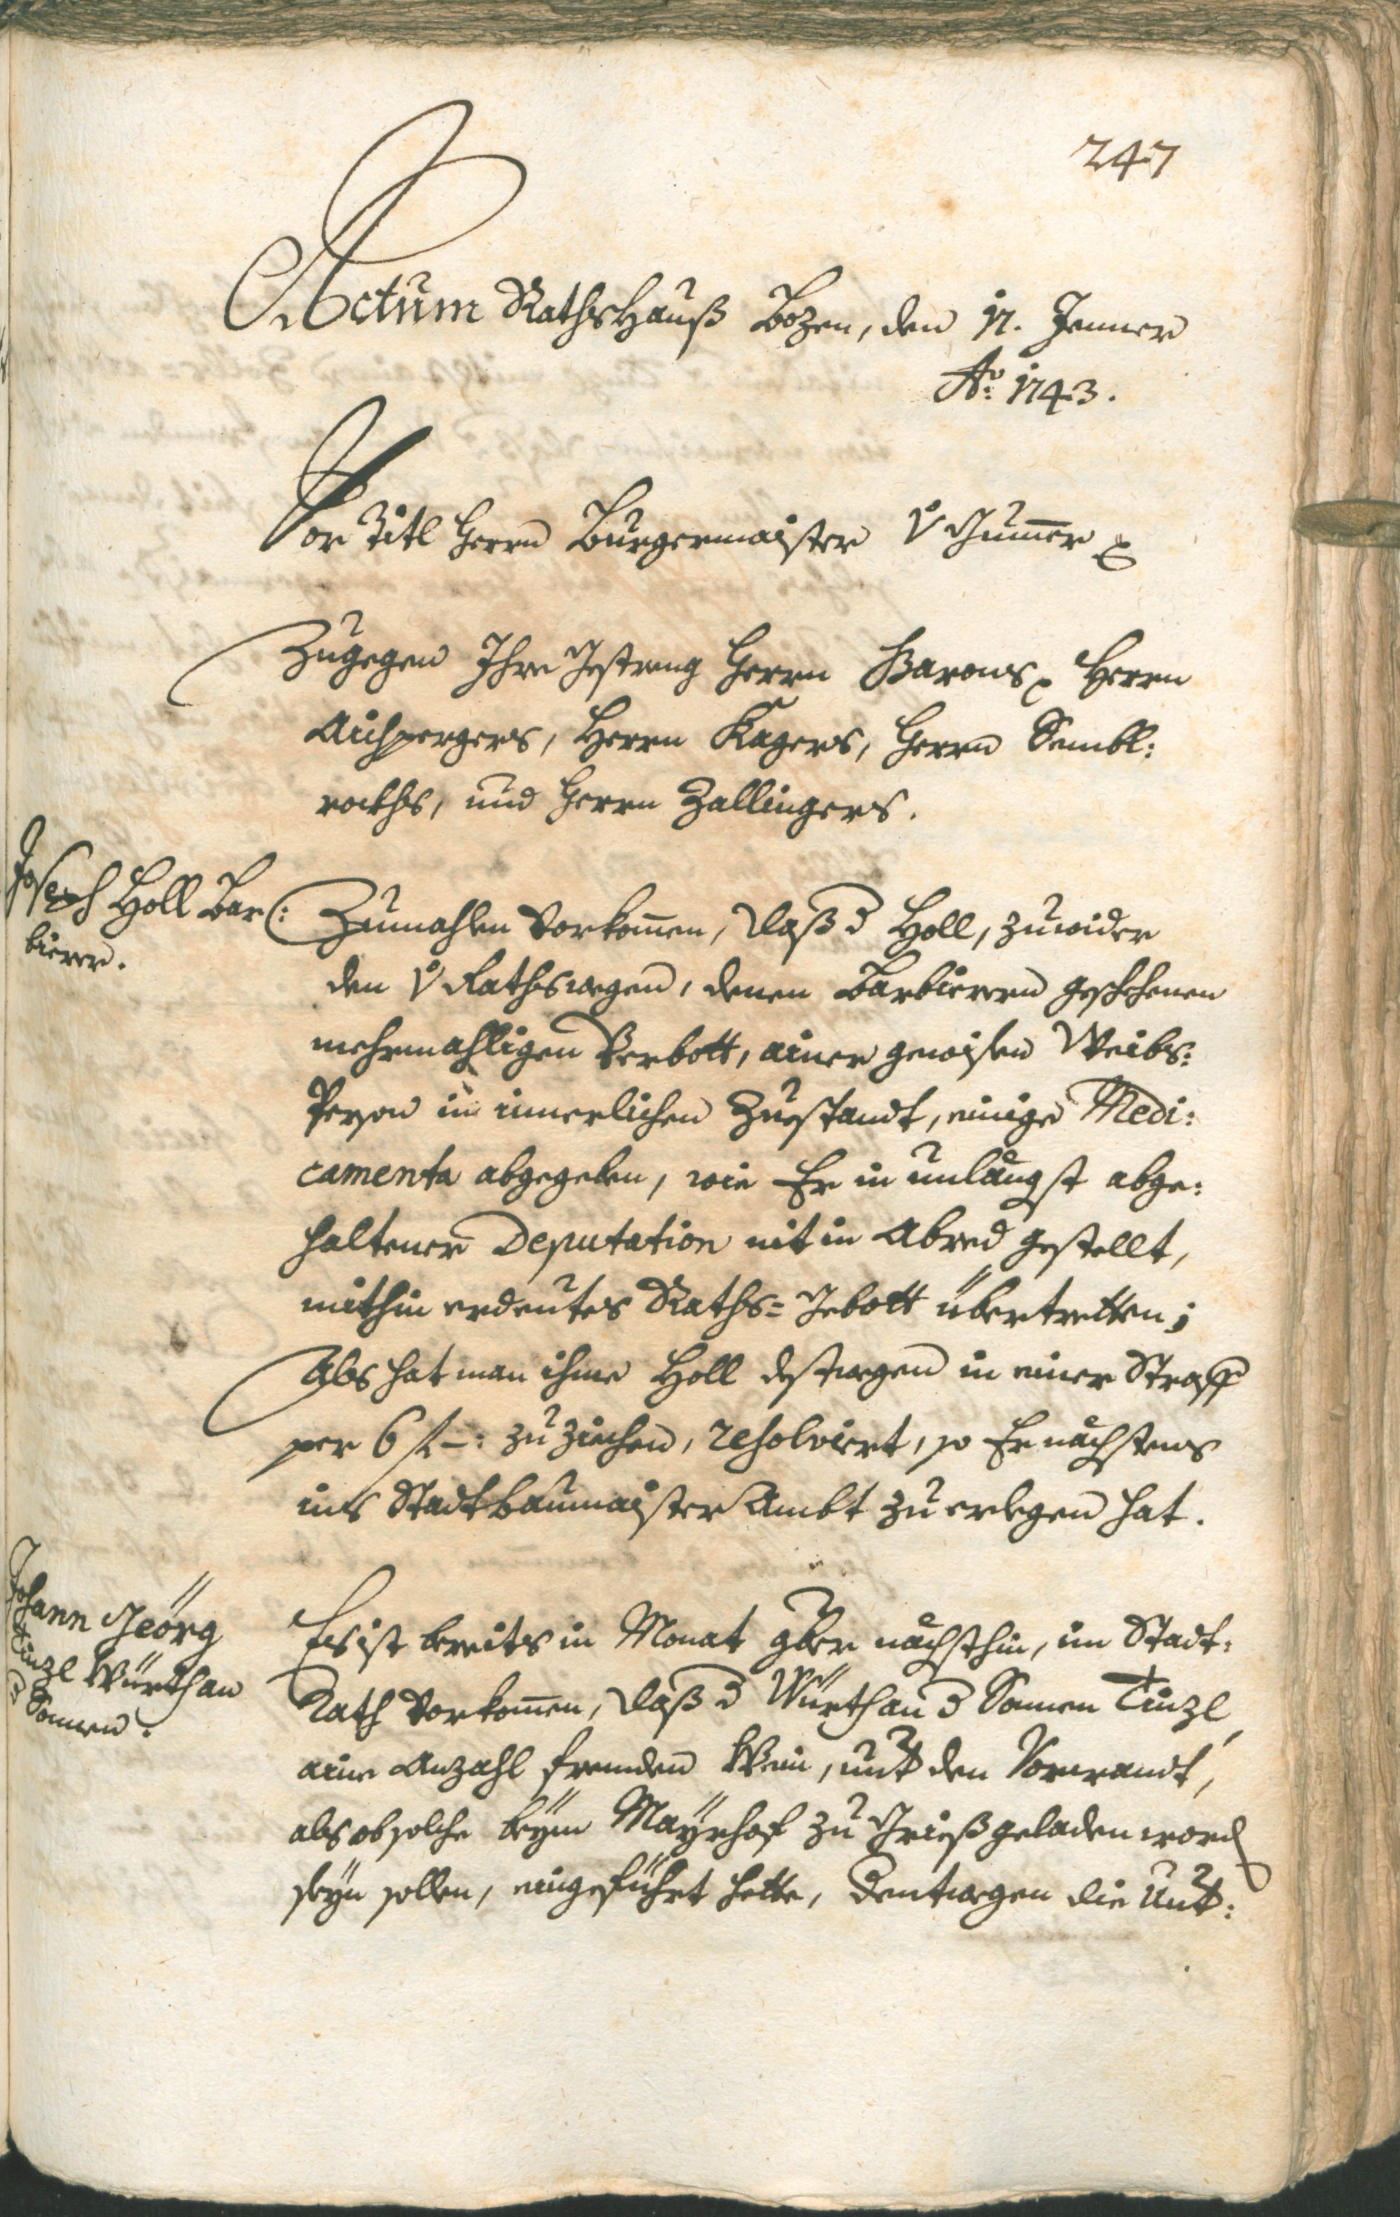 247
Actum Rathshauß Bozen, den 17. Jenner
Ao: 1743.
Vor Titl Herrn Burgermaister v Gumer
Zugegen Ihre Gestreng Herrn Barons Herrn
Aichpergers, Herrn Kagers, Herrn Sembl:
rockhs, und Herrn Zallingers.
Joseph Holl Bar:
bierer.
Zumahlen vorkomen, daß d Holl, zuwider
den v Rathswegen, denen Barbierern geschehenen
mehrmahligen Verbott, ainer gewisen Weibs:
Person in innerlichen Zuestandt, einige Medi:
camenta abgegeben, wie Er in unlängst abge:
haltener Deputation nit in Abred gestellt,
mithin erdeutes Raths=Gebott übertretten;
Als hat man ihme Holl destwegen in einer Straff
per 6 f –: zu ziechen, resolviert, so Er nächstens
ins Stadtbaumaister Ambt zu erlegen hat.
Johann Geörg
Tinzl Würth an
d Sonnen.
Es ist bereits in Monat 9ber nächsthin, im Stadt:
Rath vorkomen, daß d Würth an d Sonnen Tinzl,
aine Anzahl frembden Wein, unt den Vorwandt,
als ob solche beym Mayrhof zu Grieß geladen word
seyn sollen, eingeführt hette, dentwegen die Unt: